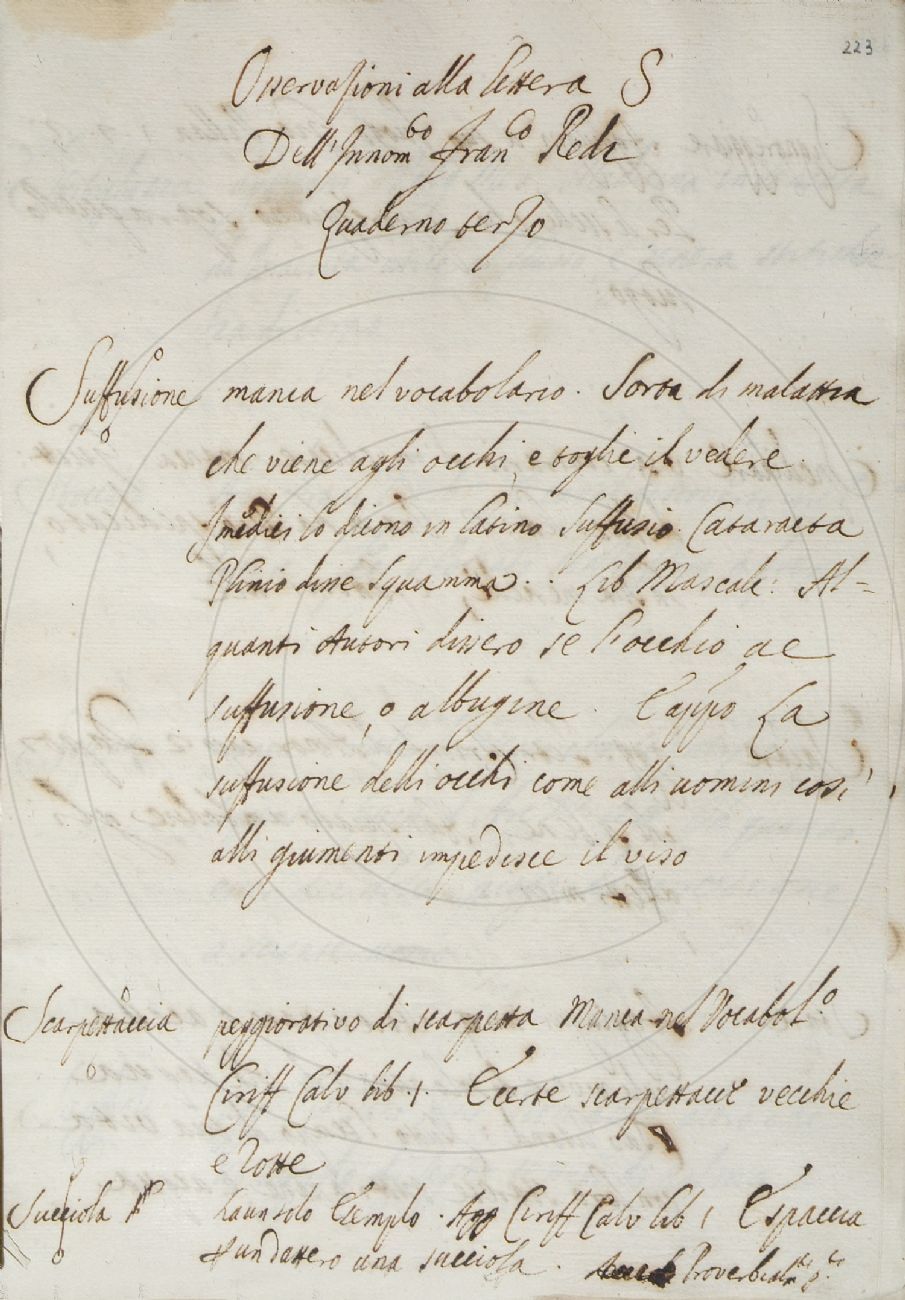 223
Osservazioni alla lettera S
Dell' Innom.to Fran.co Redi
Quaderno terzo
Suffusione manca nel vocabolario. Sorta di malattia
che viene agli occhi, e toglie il vedere.
I medici lo dicono in latino Suffusio. Cataracta
Plinio disse Squamma. Lib Mascalc: Al-
quanti Autori dissero se l'occhio àe
suffusione, o albugine. E appo La
suffusione delli occhi come alli uomini così
alli giumenti impedisce il viso
Scarpettaccia peggiorativo di scarpetta Manca nel Vocabol.o
Ciriff Calv lib. 1. E certe scarpettacce vecchie
e rotte
Succiola ha un solo Esemplo. Agg Ciriff Calv lib 1 E spaccia
per un dattero una succiola. Proverbialm.te